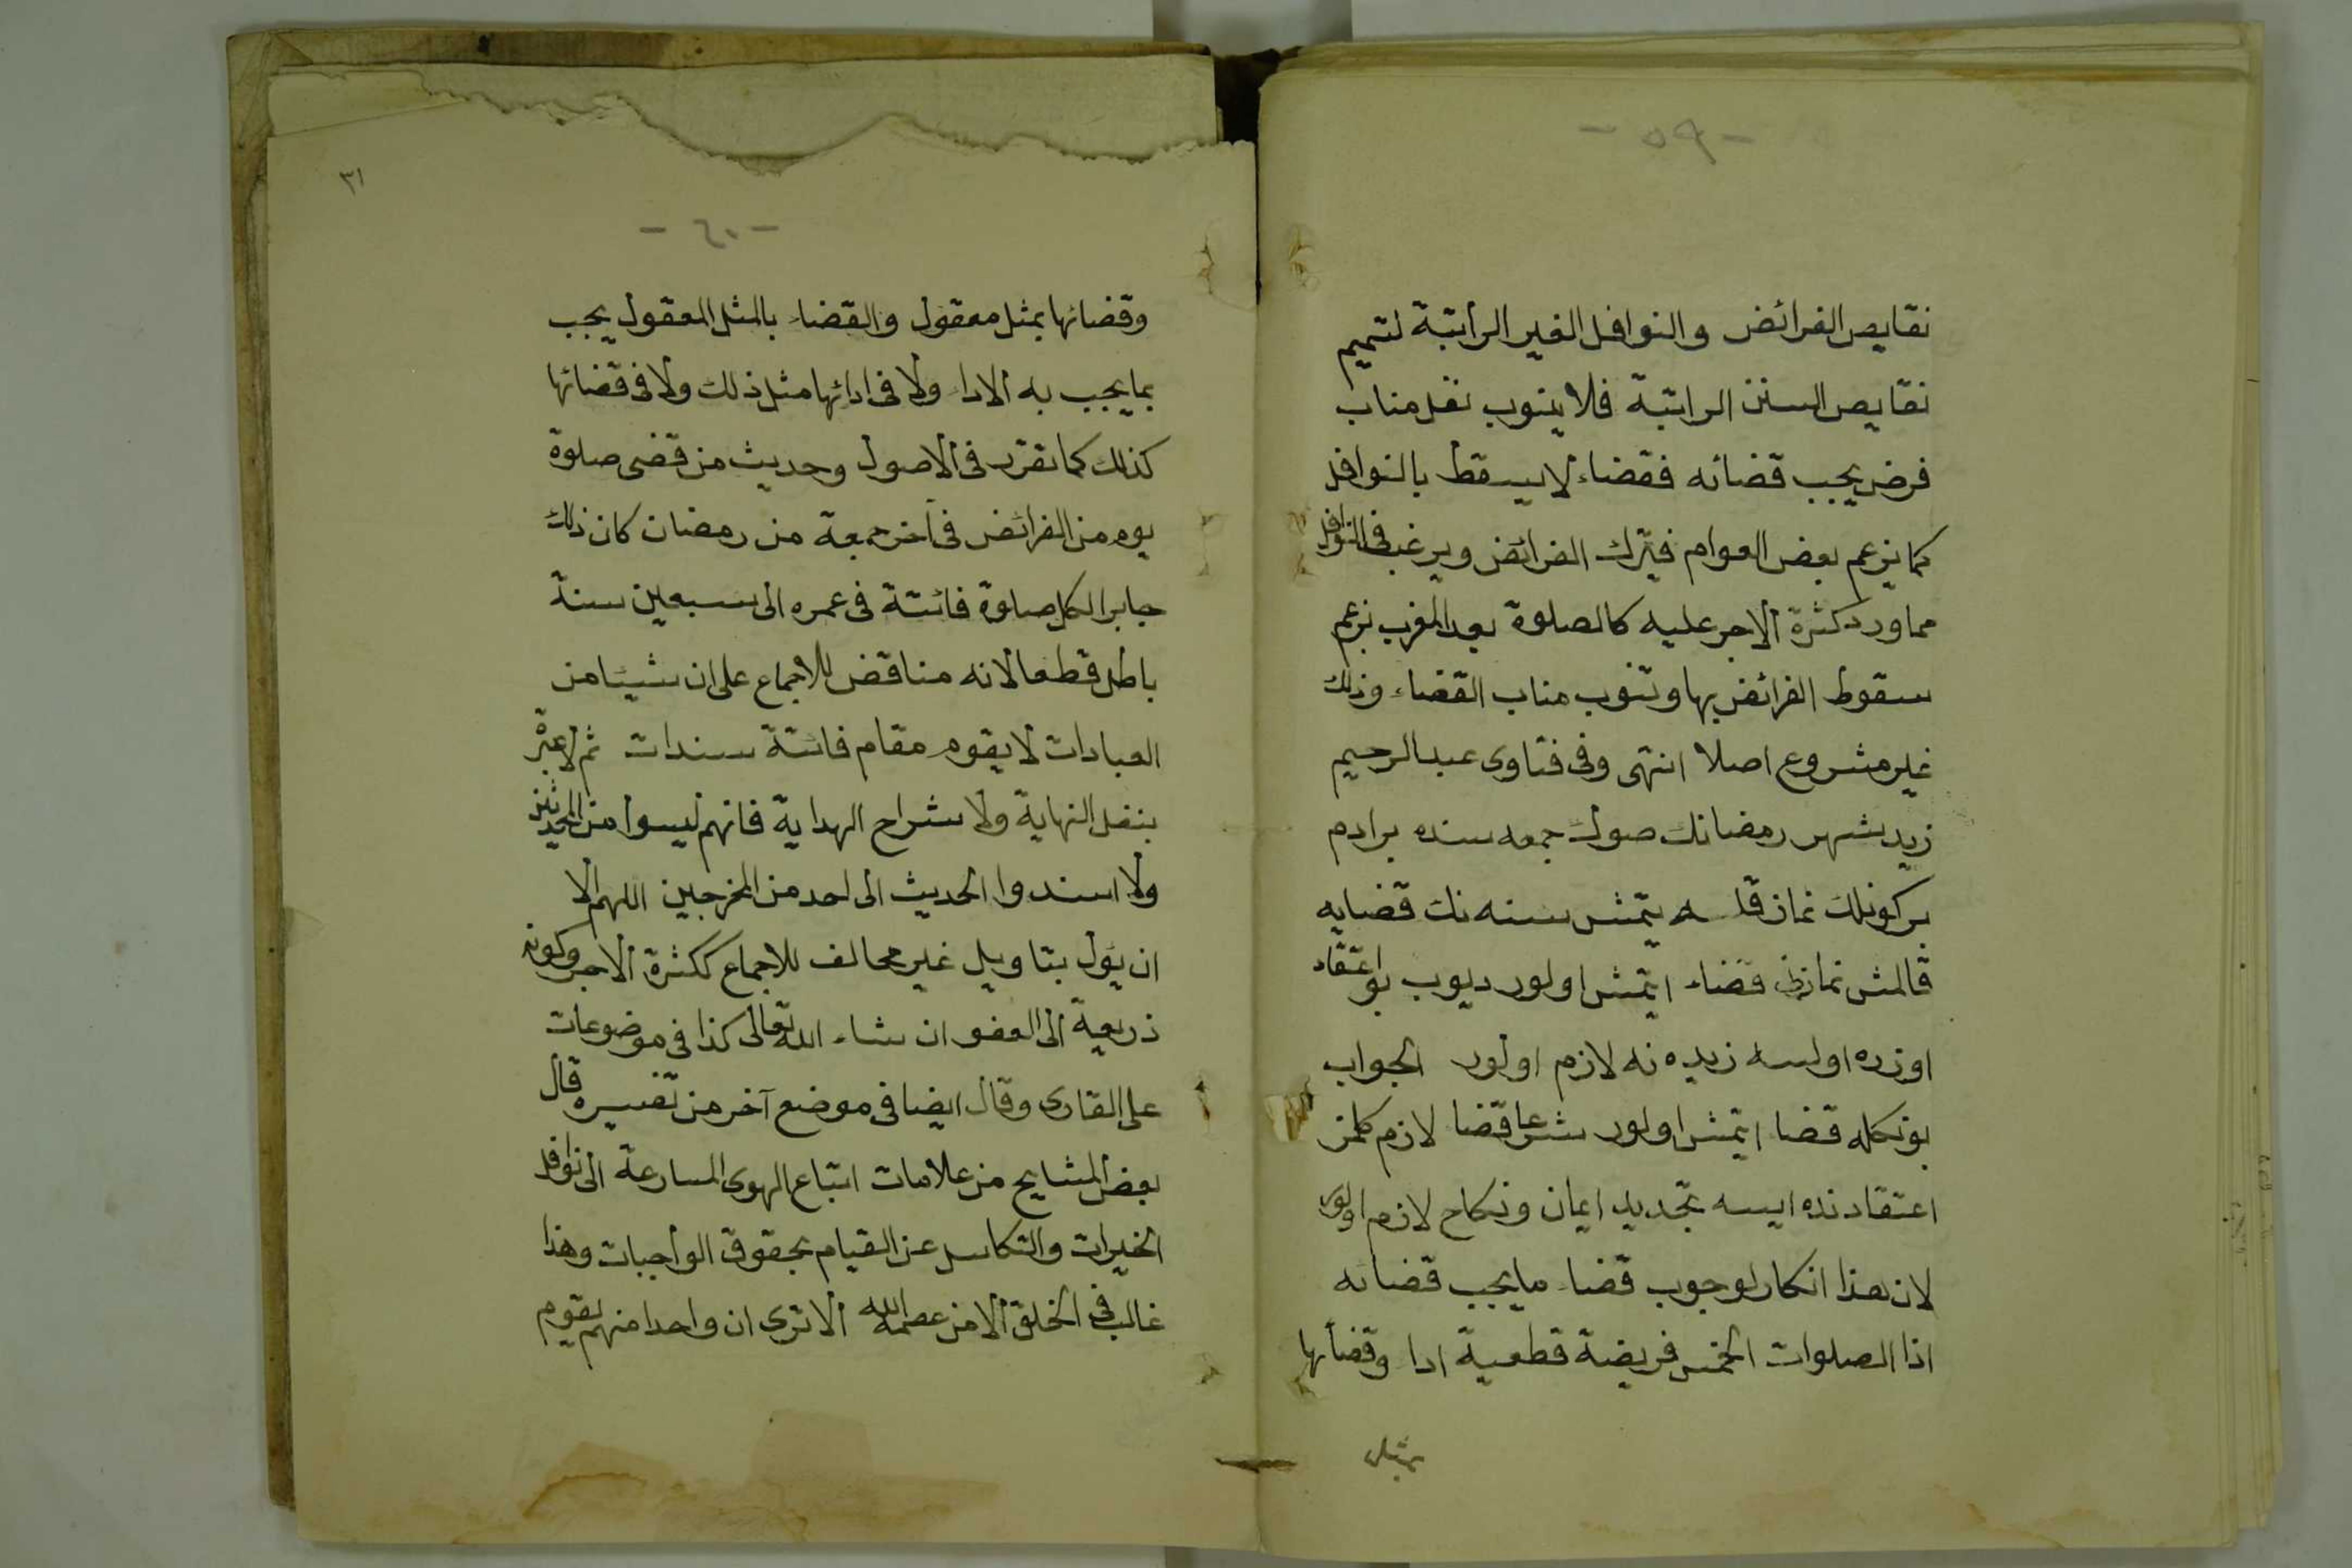 - ٥٩ -
نقايص الفرائض والنوافل الغير الراتبة لتتميم
نقايص السنن الراتبة فلا ينوب نفل مناب
فرض يجب قضائه فقضاء لا يسقط بالنوافل
كما يزعم بعض العوام فيترك الفرائض ويرغب فى النوافل
مما ورد كثرة الاجر عليه كالصلوة بعد المغرب يزعم
سقوط الفرائض بها وتنوب مناب القضاء وذلك
غير مشروع اصلا انتهى وفى فتاوى عبد الرحيم
زيد شهر رمضانك صوك جمعه سنده برادم
بر كونلك نماز قلسه يتمش سنه نك قضايه
قالمش نمازى قضاء ايتمش اولور ديوب بو اعتقاد
اوزره اولسه زيده نه لازم اولور الجواب
بونكله قضا ايتمش اولور شرعا قضا لازم كلمز
اعتقادنده ايسه تجديد ايمان ونكاح لازم اولور
لان هذا انكار لوجوب قضاء ما يجب قضائه
اذا الصلوات الخمس فريضة قطعية ادا وقضائها
بمثل
٣١
- ٦٠ -
وقضائها بمثل معقول والقضاء بالمثل المعقول يجب
بما يجب به الادا ولا فى ادائها مثل ذلك ولا فى قضائها
كذلك كما تقرر فى الاصول وحديث من قضى صلوة
يوم من الفرائض فى آخر جمعة من رمضان كان ذلك
جابرا لكل صلوة فائتة فى عمره الى سبعين سنة
باطل قطعا لانه مناقض للاجماع على ان شيئا من
العبادات لا يقوم مقام فائتة سندات ثم لا عبرة
بنقل النهاية ولا شراح الهداية فانهم ليسوا من المحدثين
ولا اسندوا الحديث الى احد من المخرجين اللهم الا
ان يؤل بتاويل غير مخالف للاجماع ككثرة الاجر وكونه
ذريعة الى العفو ان شاء الله تعالى كذا فى موضوعات
على القارى وقال ايضا فى موضع آخر من تفسيره قال
بعض المشايح من علامات اتباع الهوى المسارعة الى نوافل
الخيرات والتكاسل عن القيام بحقوق الواجبات وهذا
غالب فى الخلق الا من عصمه الله الا ترى ان واحدا منهم يقوم